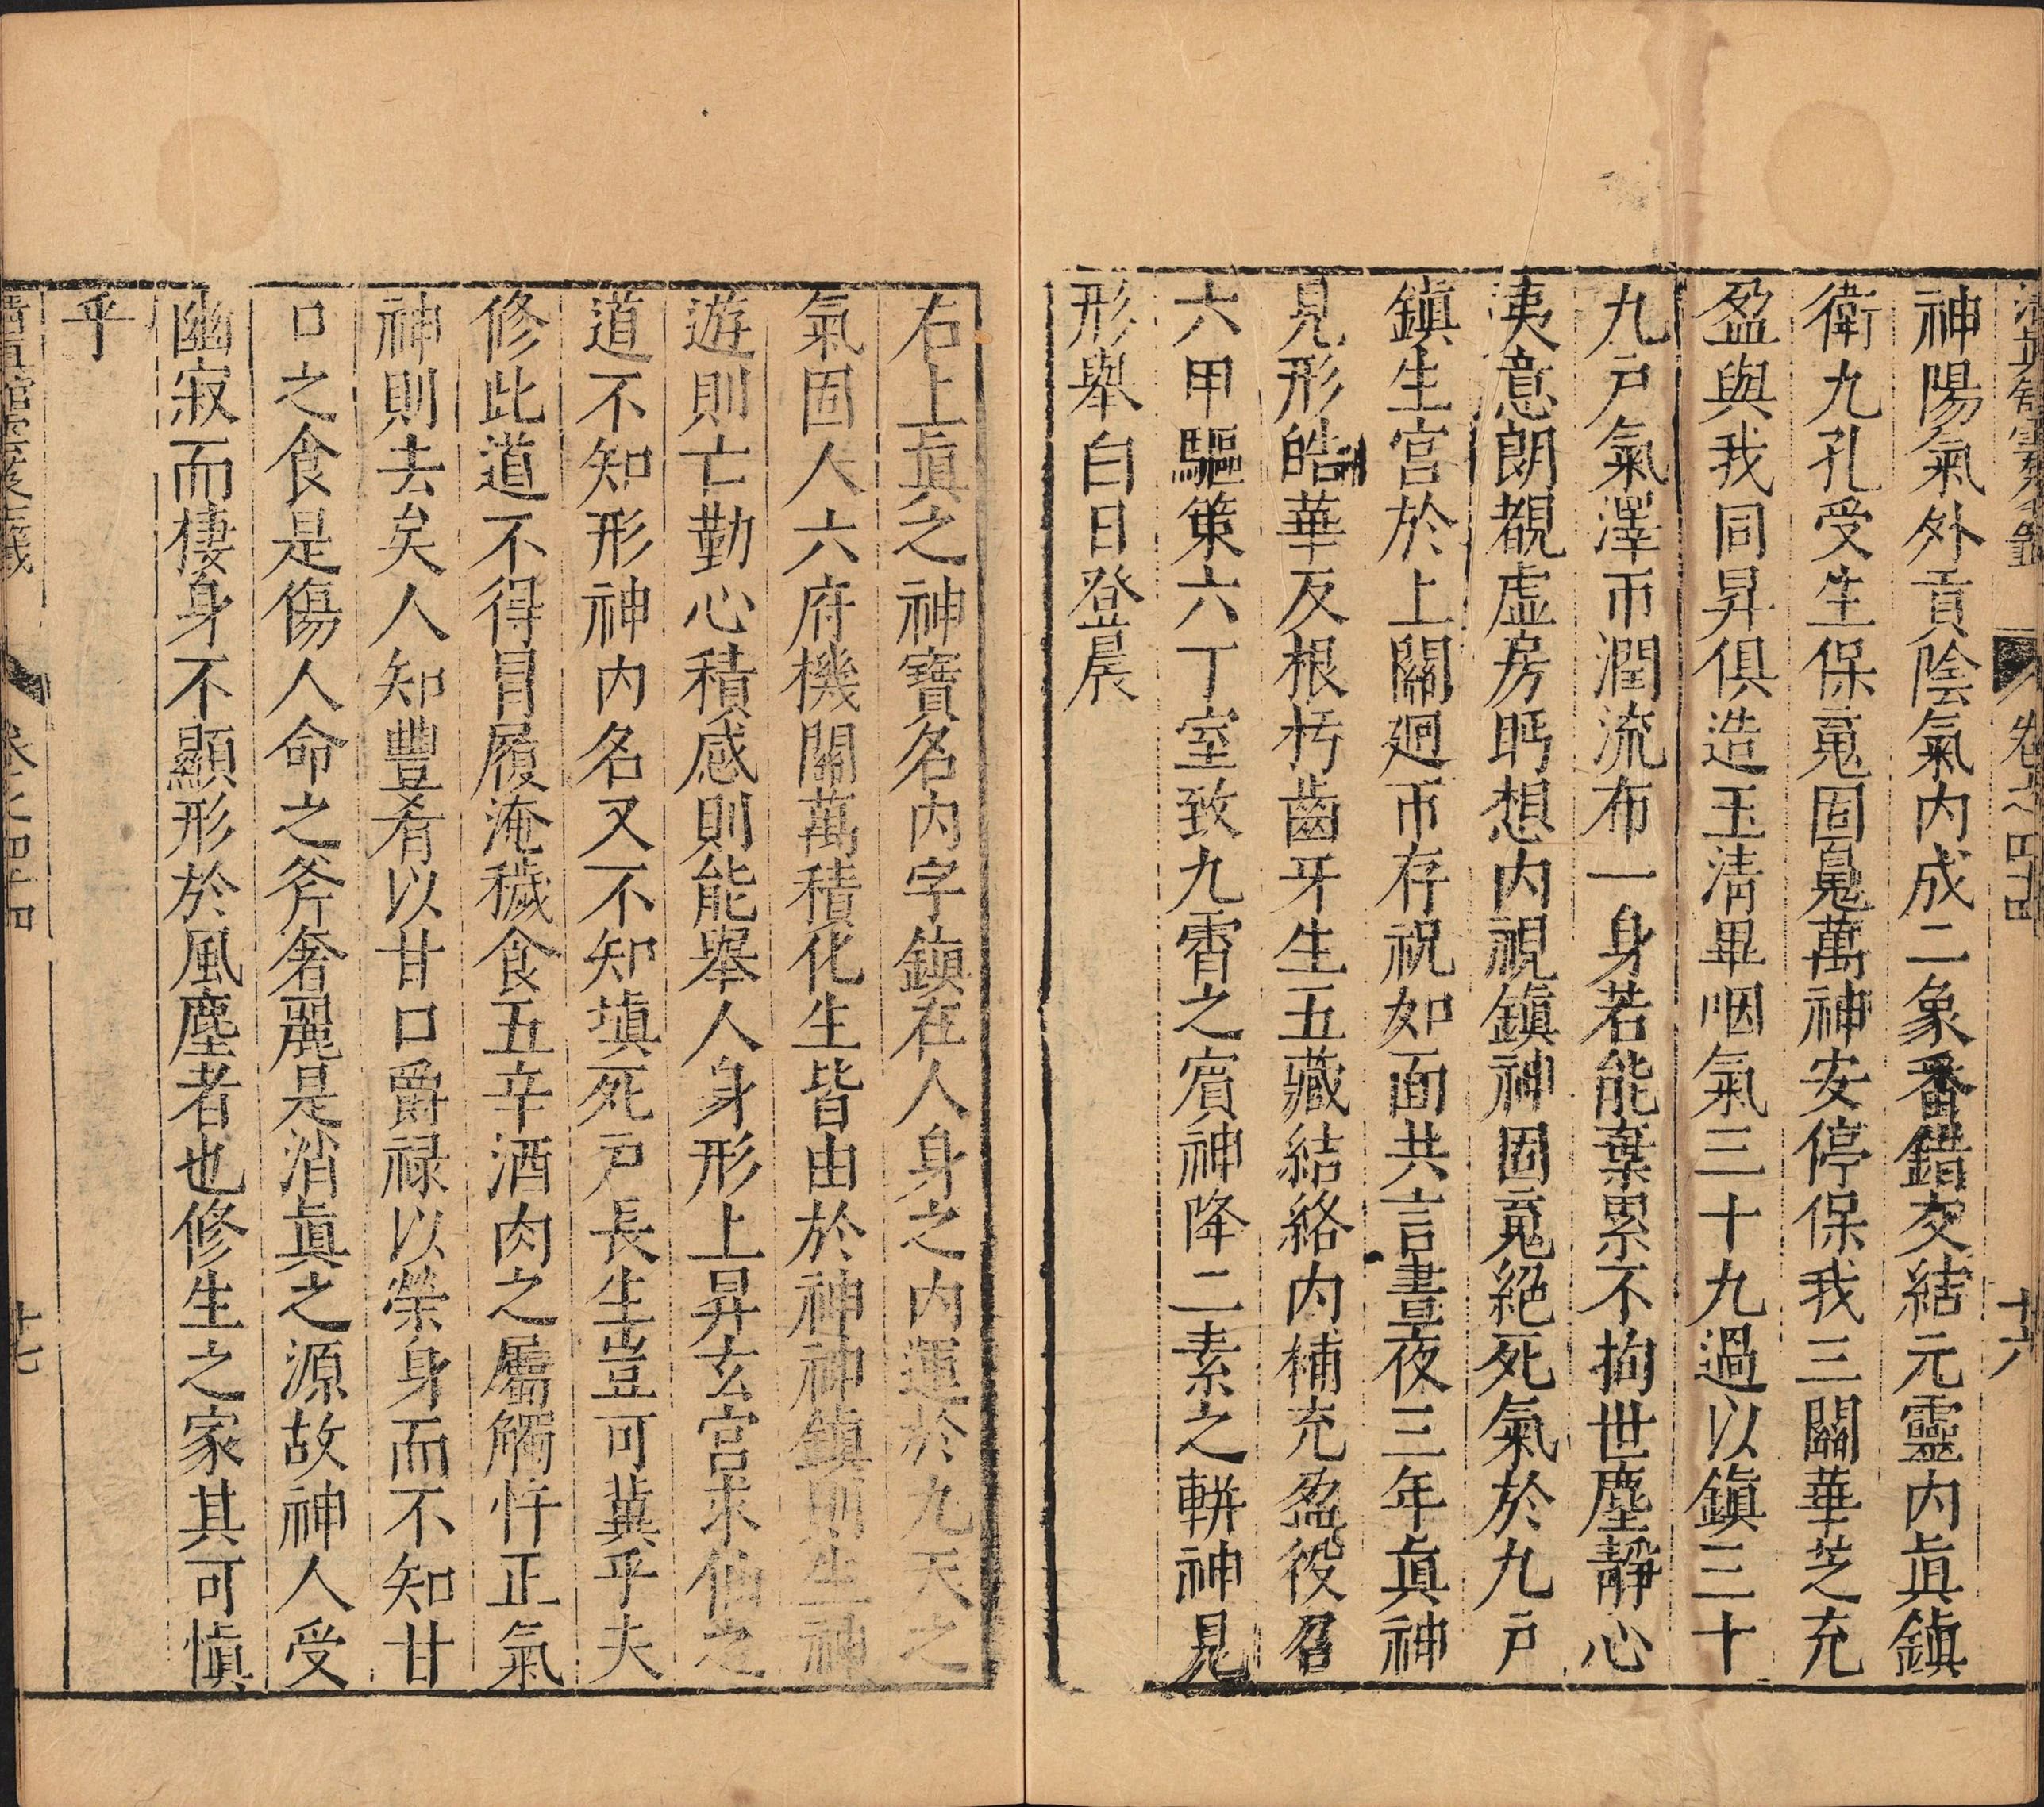 神陽氣外貢陰氣内成二象番錯交結元靈内眞鎮
衛九孔受生保䰟固鬽萬神安停保我三關華芝充
盈與我同昇俱造玉淸畢咽氣三十九過以鎮三十
九戸氣澤帀潤流布一身若能棄累不拘世塵靜心
夷意朗覩虚房眄想内視鎮神固䰟絕死氣於九戸
鎮生宫於上關廻帀存祝如面共言晝夜三年眞神
見形皓華反根朽齒牙生五藏結絡内補充盈役召
六甲驅策六丁室致九霄之賔神降二素之軿神晃
形舉白日登晨
右上眞之神寶名内字鎮在人身之内運於九天之
氣固人六府機關萬積化生皆由於神神鎮則生神
遊則亡勤心積感則能舉人身形上昇玄宫求仙之
道不知形神内名又不知塡死戸長生豈可冀乎夫
修此道不得冒履淹穢食五辛酒肉之屬觸忤正氣
神則去矣人知豐肴以甘口爵禄以榮身而不知甘
口之食是傷人命之斧奢麗是消眞之源故神人受
幽寂而棲身不顯形於風塵者也修生之家其可愼
乎
卷之四十四
十六
卷之四十四
十七